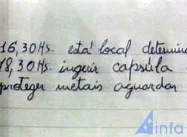 16,30 Hs. está local determin
18,30 Hs. ingerir capsula
proteger metais aguardar
infa